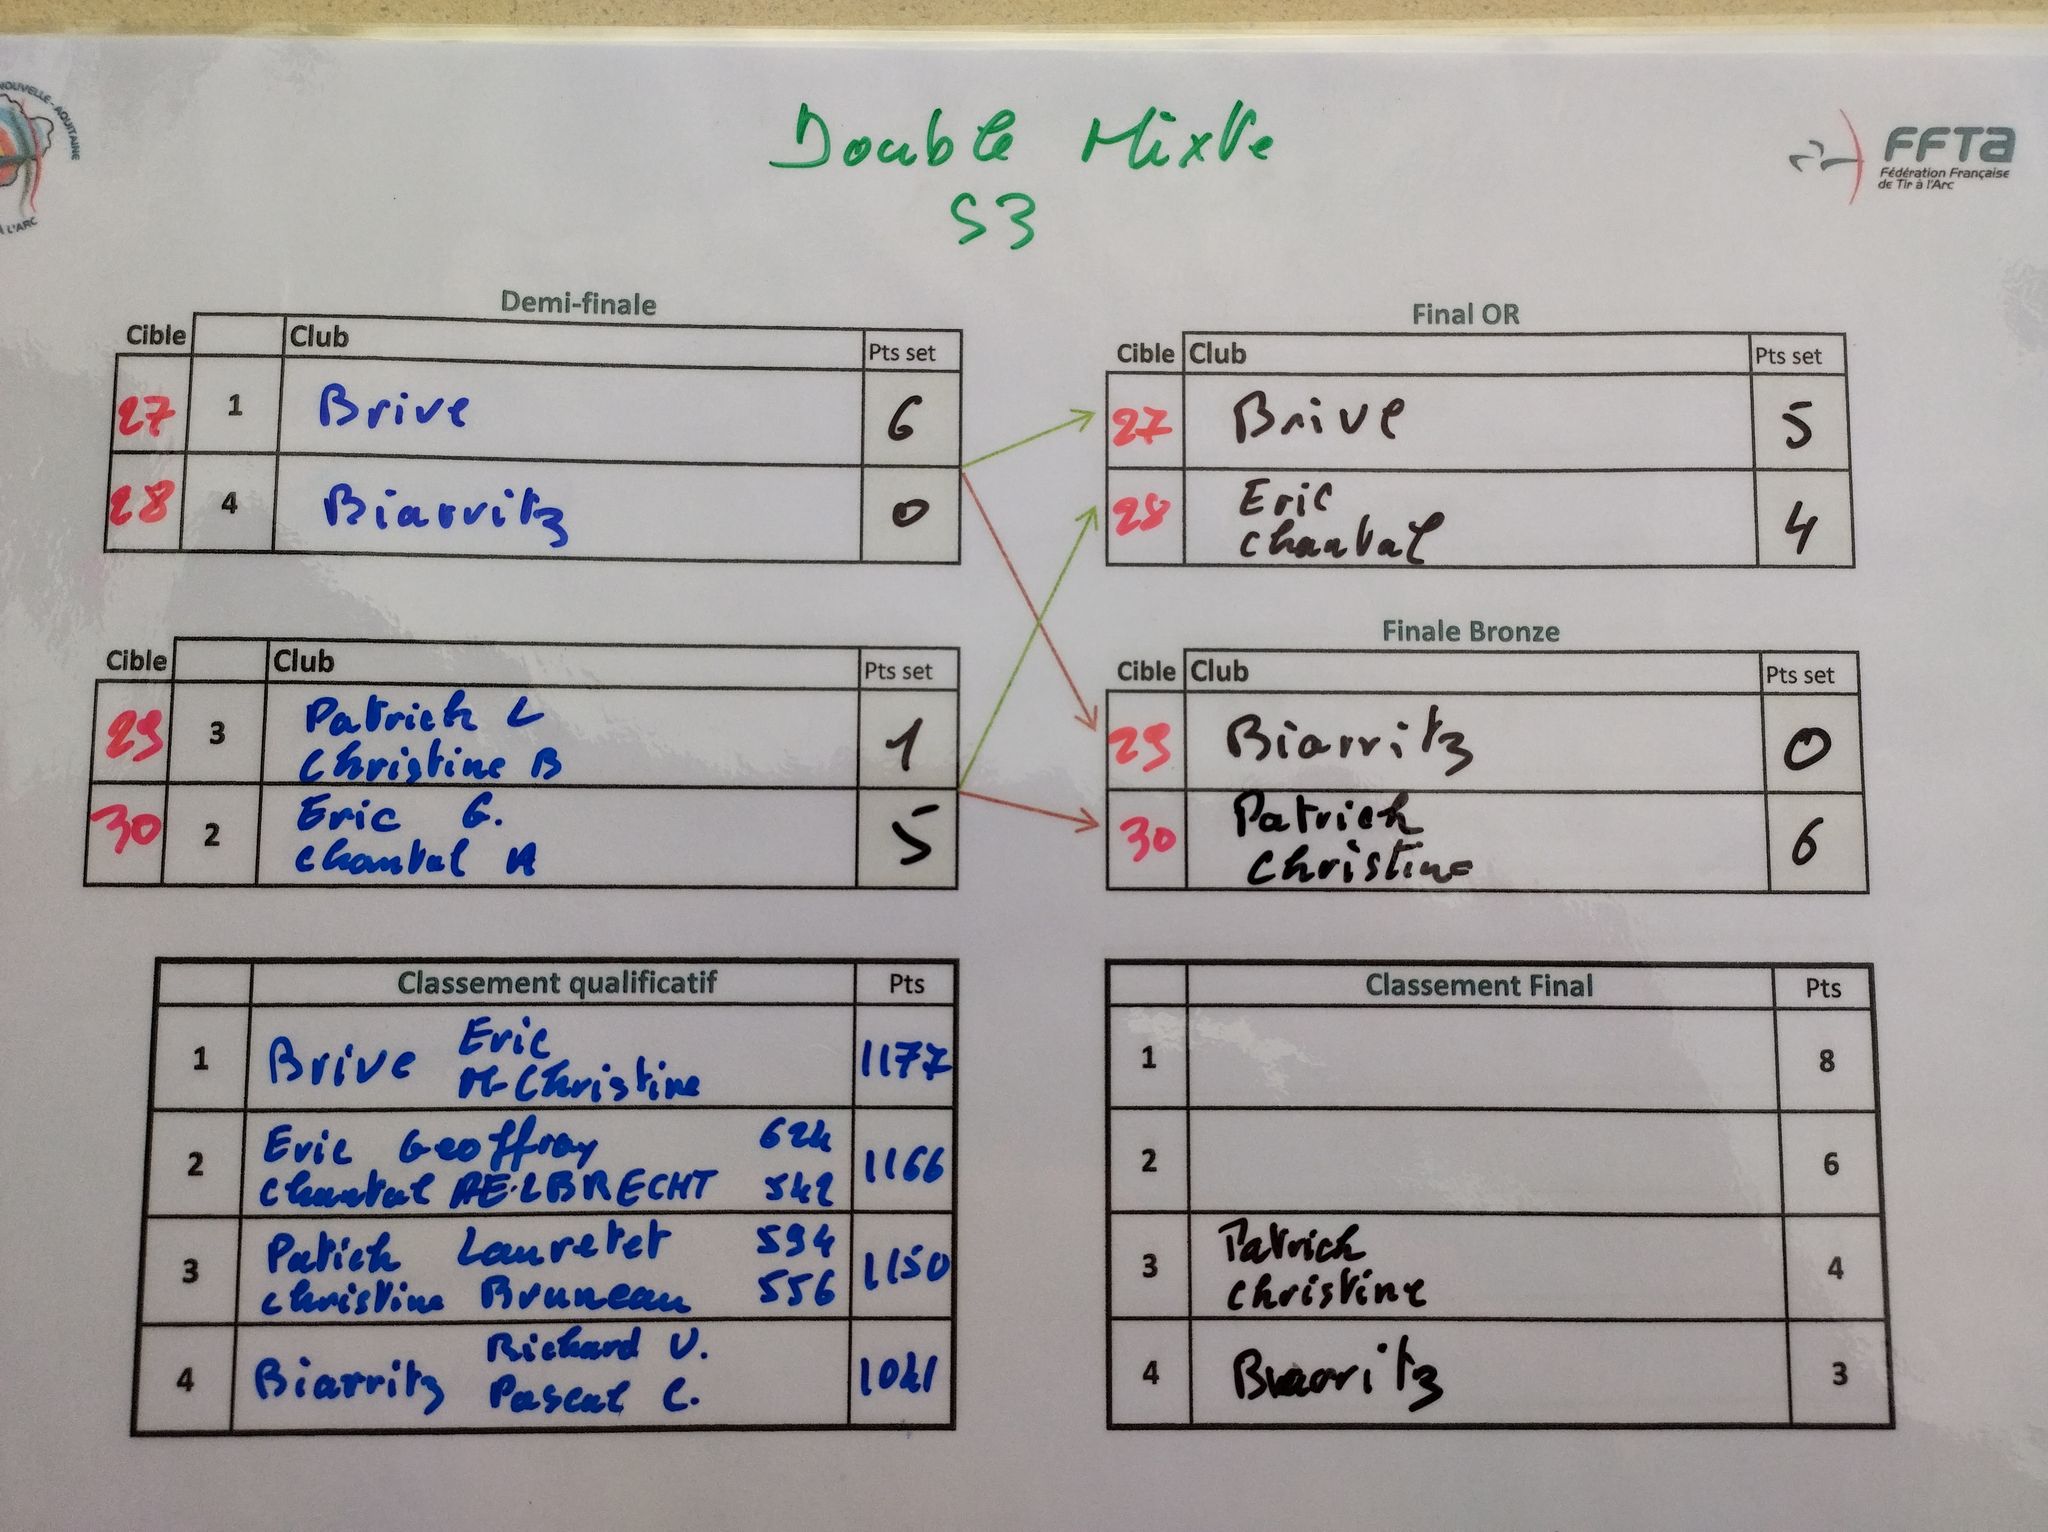 NOUVELLE-AQUITAINE
L'ARC
Double Mixte
S3
FFTA
Fédération Française
de Tir à l'Arc
Demi-finale
Cible Club Pts set
27 1 Brive 6
28 4 Biarritz 0
Final OR
Cible Club Pts set
27 Brive 5
28 Eric
Chantal 4
Cible Club Pts set
29 3 Patrick L
Christine B 1
30 2 Eric G.
Chantal A 5
Finale Bronze
Cible Club Pts set
29 Biarritz 0
30 Patrick
Christine 6
Classement qualificatif Pts
1 Brive Eric
M-Christine 1177
2 Eric Geoffray 624
Chantal AELBRECHT 542 1166
3 Patick Lauretet 594
Christine Bruneau 556 1150
4 Biarritz Richard V.
Pascal C. 1041
Classement Final Pts
1 8
2 6
3 Patrick
Christine 4
4 Biarritz 3